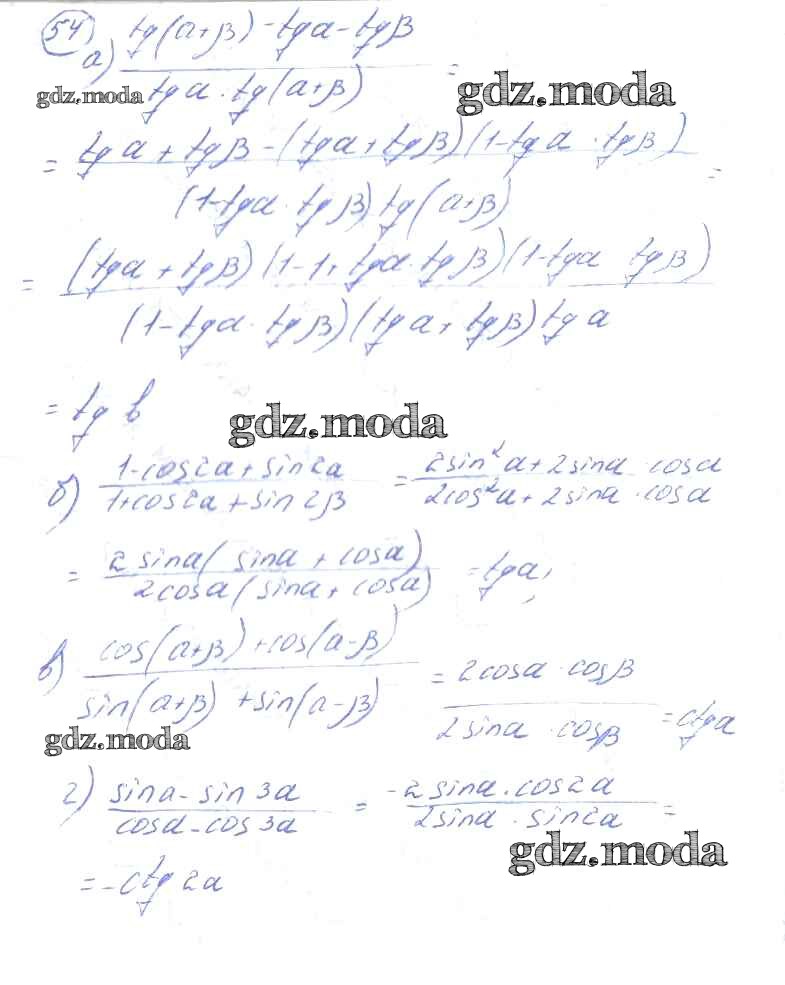 54
а) tg(α+β) - tgα - tgβ / tgα · tg(α+β) =
gdz.moda
gdz.moda
= tgα + tgβ - (tgα + tgβ)(1 - tgα · tgβ) / (1 - tgα · tgβ) tg(α+β) =
= (tgα + tgβ)(1 - 1 + tgα · tgβ)(1 - tgα tgβ) / (1 - tgα · tgβ)(tgα + tgβ) tgα
= tg b
gdz.moda
б) 1 - cos2α + sin2α / 1 + cos2α + sin2β = 2sin²α + 2sinα · cosα / 2cos²α + 2sinα · cosα
= 2sinα(sinα + cosα) / 2cosα(sinα + cosα) = tgα;
в) cos(α+β) + cos(α-β) / sin(α+β) + sin(α-β) = 2cosα · cosβ / 2sinα · cosβ = ctgα
gdz.moda
г) sinα - sin3α / cosα - cos3α = -2sinα · cos2α / 2sinα · sin2α =
gdz.moda
= -ctg2α